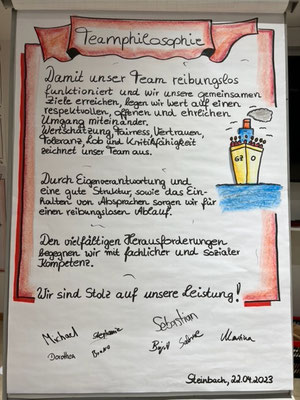 Teamphilosophie
Damit unser Team reibungslos
funktioniert und wir unsere gemeinsamen
Ziele erreichen, legen wir Wert auf einen
respektvollen, offenen und ehrlichen
Umgang miteinander.
Wertschätzung, Fairness, Vertrauen,
Toleranz, Lob und Kritikfähigkeit
zeichnet unser Team aus.
Durch Eigenverantwortung und
eine gute Struktur, sowie das Ein-
halten von Absprachen sorgen wir für
einen reibungslosen Ablauf.
Den vielfältigen Herausforderungen
begegnen wir mit fachlicher und sozialer
Kompetenz.
Wir sind Stolz auf unsere Leistung!
Michael Stephanie Sebastian
Dorothea Bruno Birgit Sabine Martina
Steinbach, 22.04.2023